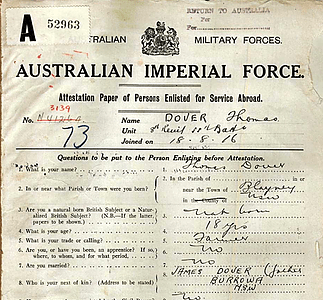 A 52963
RETURN TO AUSTRALIA
Per
For
AUSTRALIAN MILITARY FORCES.
AUSTRALIAN IMPERIAL FORCE.
Attestation Paper of Persons Enlisted for Service Abroad.
3139
No. Name DOVER Thomas
73 Unit
Joined on 18.8.16
Questions to be put to the Person Enlisting before Attestation.
1. What is your name? 1. Thomas Dover
2. In or near what Parish or Town were you born? 2. In the Parish of in or
near the Town of Blayney
in the County of NSW
3. Are you a natural born British Subject or a Naturalized British Subject? (N.B.—If the latter, papers to be shown.) 3. Nat born
4. What is your age? 4. 18 yrs
5. What is your trade or calling? 5. Farmer
6. Are you, or have you been, an apprentice? If so, where, to whom, and for what period. 6. No
7. Are you married? 7. No
8. Who is your next of kin? (Address to be stated) 8. JAMES DOVER (father
BURROWA
NSW
No